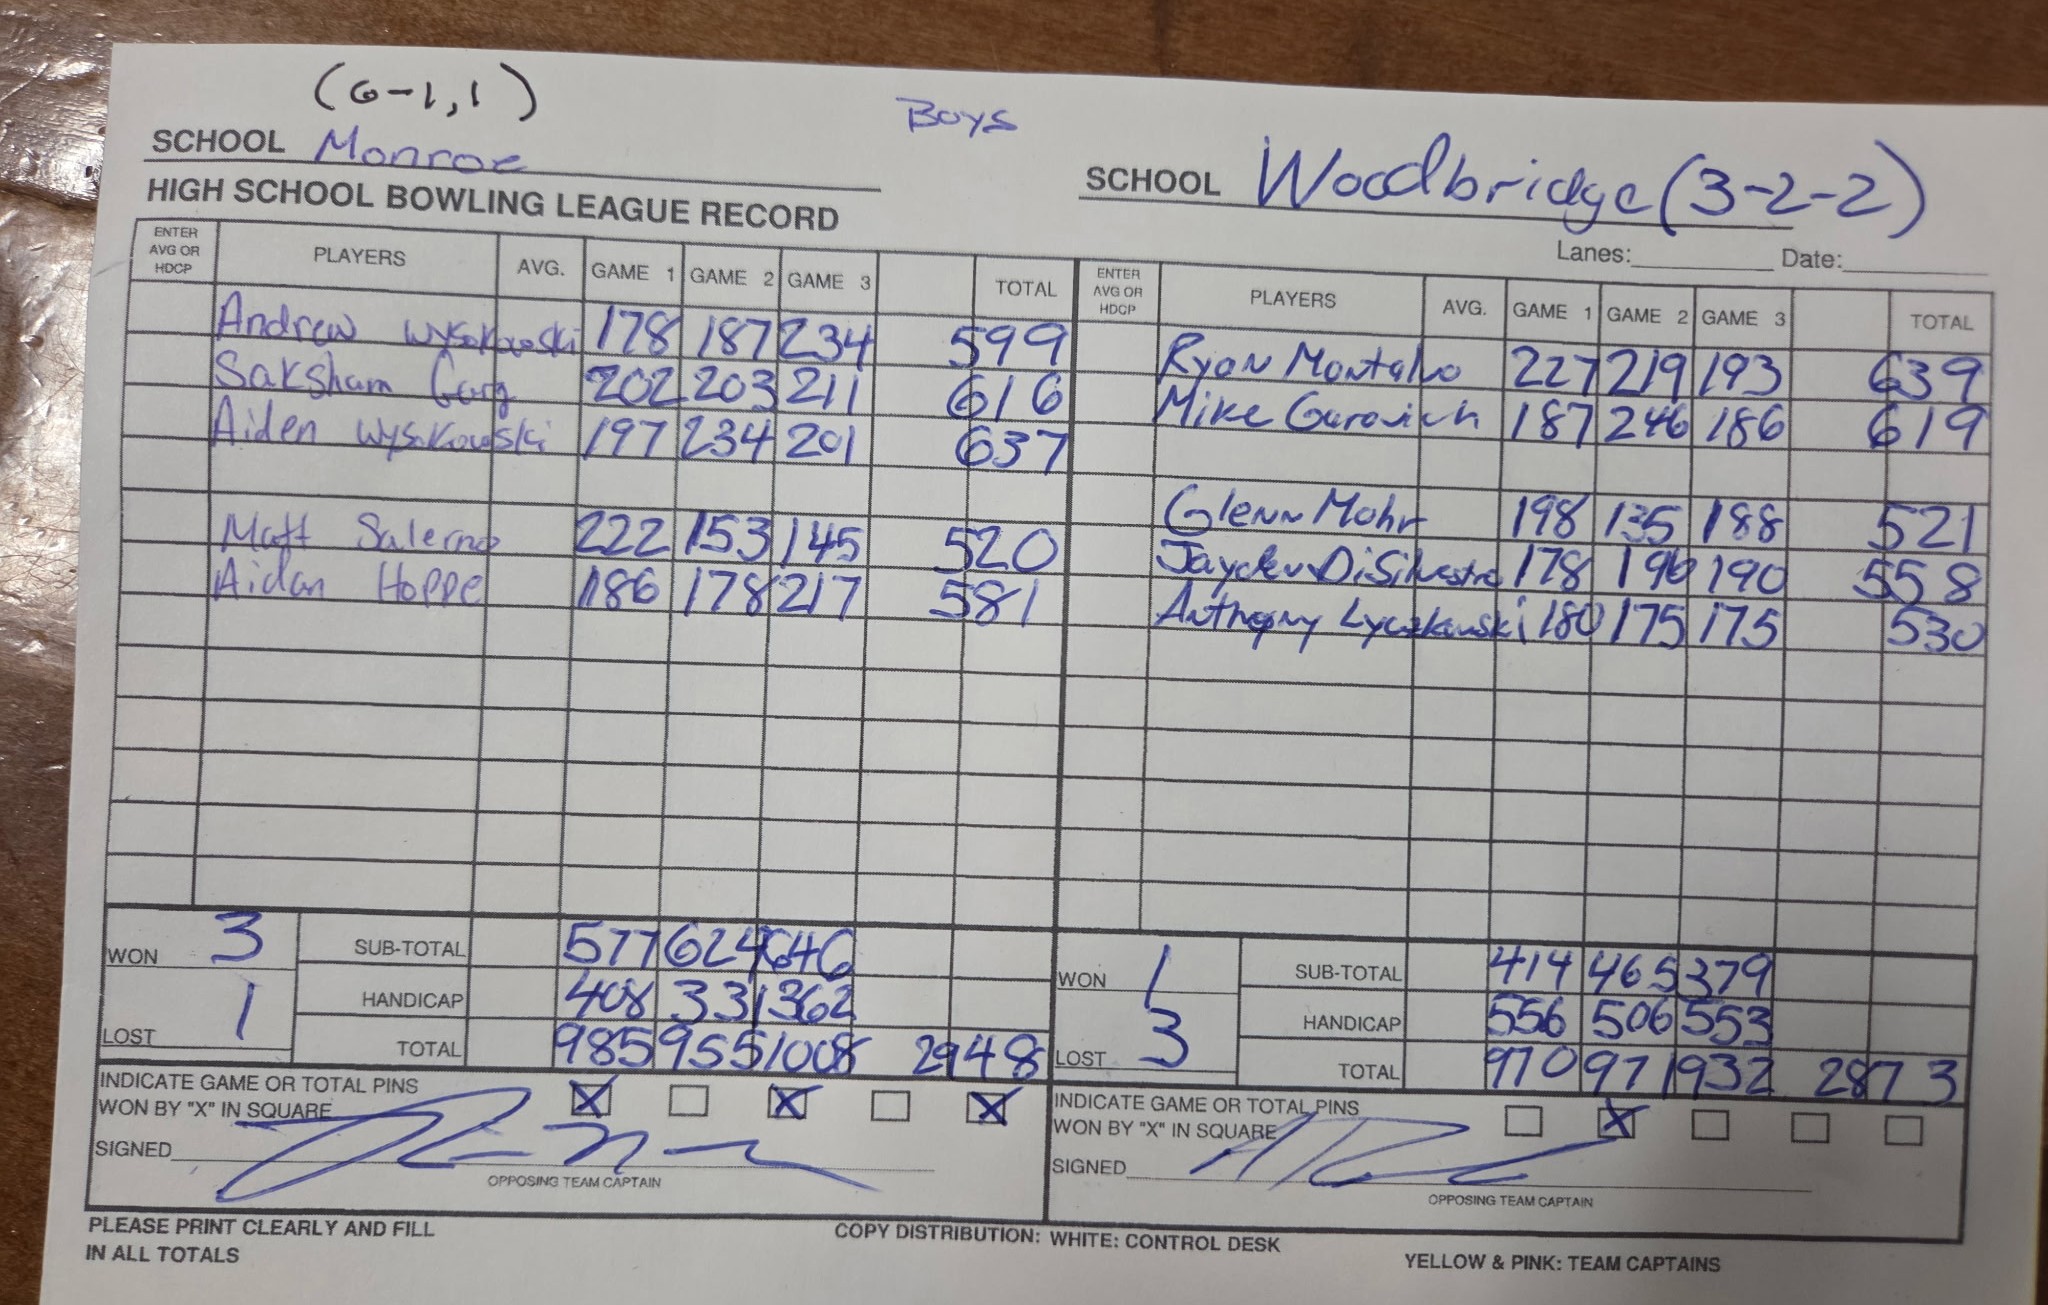 (6-1,1)
Boys
SCHOOL Monroe
SCHOOL Woodbridge (3-2-2)
HIGH SCHOOL BOWLING LEAGUE RECORD
Lanes: Date:
ENTER AVG OR HDCP PLAYERS AVG. GAME 1 GAME 2 GAME 3 TOTAL ENTER AVG OR HDCP PLAYERS AVG. GAME 1 GAME 2 GAME 3 TOTAL
Andrew Wysokowski 178 187 234 599
Ryan Montalvo 227 219 193 639
Saksham Garg 202 203 211 616
Mike Gurovich 187 246 186 619
Aiden Wysokowski 197 234 201 637
Glenn Mohr 198 135 188 521
Matt Salerno 222 153 145 520
Jayden DiSilvestro 178 196 190 558
Aidan Hoppe 186 178 217 581
Anthony Lyczkowski 180 175 175 530
WON 3 SUB-TOTAL 577 624 646
WON 1 SUB-TOTAL 414 465 379
HANDICAP 408 331 362
HANDICAP 556 506 553
LOST 1 TOTAL 985 955 1008 2948
LOST 3 TOTAL 970 971 932 2873
INDICATE GAME OR TOTAL PINS
WON BY "X" IN SQUARE X X X
INDICATE GAME OR TOTAL PINS
WON BY "X" IN SQUARE X
SIGNED
OPPOSING TEAM CAPTAIN
SIGNED
OPPOSING TEAM CAPTAIN
PLEASE PRINT CLEARLY AND FILL
IN ALL TOTALS
COPY DISTRIBUTION: WHITE: CONTROL DESK
YELLOW & PINK: TEAM CAPTAINS